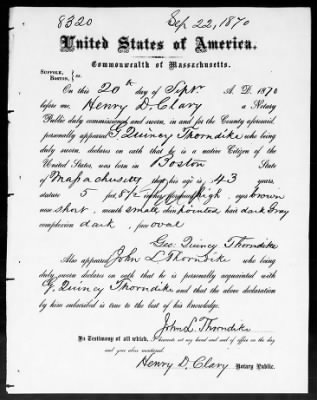 8320 Sep 22, 1870
United States of America.
Commonwealth of Massachusetts.
SUFFOLK,
BOSTON, } ss.
On this 20th day of Septr. A. D. 1870
before me, Henry D. Clary a Notary
Public duly commissioned and sworn, in and for the County aforesaid,
personally appeared G. Quincy Thorndike who being
duly sworn, declares on oath that he is a native Citizen of the
United States, was born in Boston State
of Massachusetts that his age is 43 years,
stature 5 feet 8 1/2 inches forehead high, eyes brown
nose short, mouth small chin pointed hair dark gray
complexion dark, face oval
Geo: Quincy Thorndike
Also appeared John L Thorndike who being
duly sworn declares on oath that he is personally acquainted with
G. Quincy Thorndike and that the above declaration
by him subscribed is true to the best of his knowledge.
John L. Thorndike
In Testimony of all which, I hereunto set my hand and seal of office on the day
and year above mentioned.
Henry D. Clary Notary Public.